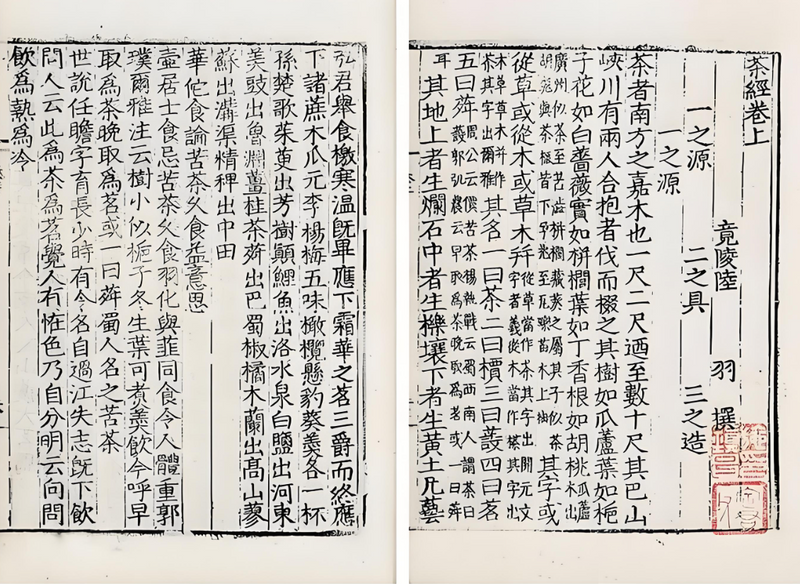 茶經卷上
竟陵陸 羽 撰
一之源 二之具 三之造
一之源
茶者南方之嘉木也一尺二尺迺至數十尺其巴山
峽川有兩人合抱者伐而掇之其樹如瓜蘆葉如梔
子花如白薔薇實如栟櫚葉如丁香根如胡桃瓜蘆木出
廣州似茶至苦澁栟櫚蒲葵之屬其子似茶
胡桃與茶根皆下孕兆至瓦礫苗木上抽 其字或
從草或從木或草木并從草當作茶其字出開元文
字音義從木當作搽其字出
木草草木并作
荼其字出爾雅 其名一曰茶二曰檟三曰蔎四曰茗
五曰荈周公云檟苦荼楊執戟云蜀西南人謂茶曰
蔎郭弘農云早取為茶晚取為茗或一曰荈
耳 其地上者生爛石中者生櫟壤下者生黃土凡藝
弘君舉食檄寒溫旣畢應下霜華之茗三爵而終應
下諸蔗木瓜元李楊梅五味橄欖懸豹葵羹各一杯
孫楚歌茱萸出芳樹顛鯉魚出洛水泉白鹽出河東
美豉出魯淵薑桂茶荈出巴蜀椒橘木蘭出高山蓼
蘇出溝渠精稗出中田
華佗食論苦茶久食益意思
壺居士食忌苦茶久食羽化與韮同食令人體重郭
璞爾雅注云樹小似梔子冬生葉可煮羹飲今呼早
取為茶晚取為茗或一曰荈蜀人名之苦茶
世說任瞻字育長少時有令名自過江失志旣下飲
問人云此為茶為茗覺人有怪色乃自分明云向問
飲為熱為冷